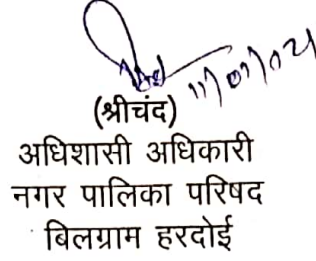 (श्रीचंद)
अधिशासी अधिकारी
नगर पालिका परिषद
बिलग्राम हरदोई